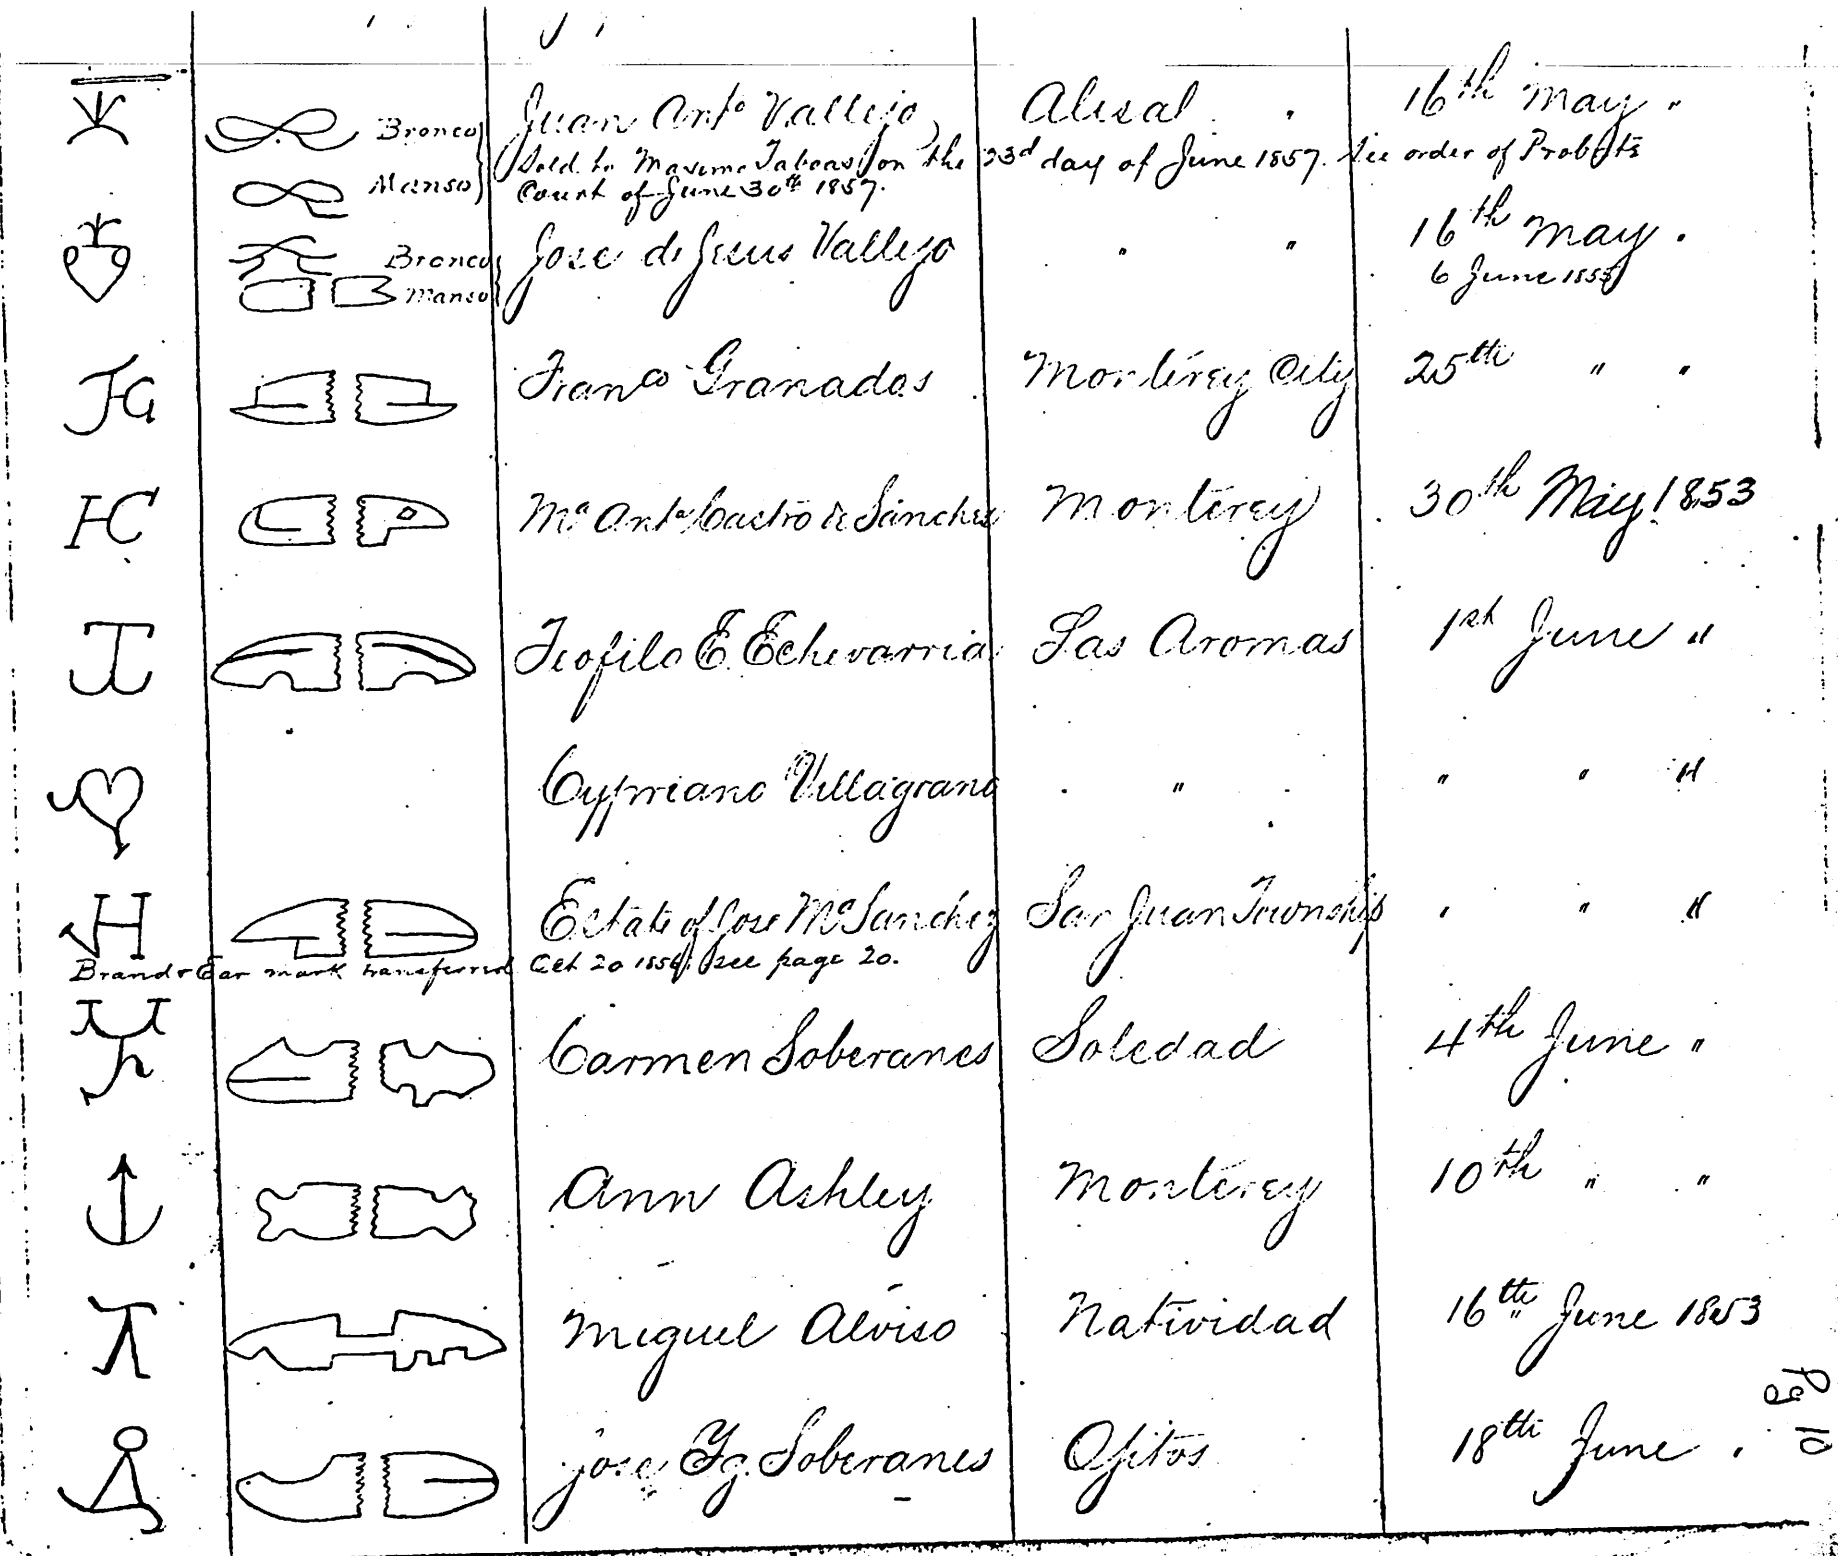 Bronco Juan Anto Vallejo Alisal " 16th May "
Sold to Maximo Taboas on the 23d day of June 1857. See order of Probate
Manso Court of June 30th 1857.
Bronco Jose de Jesus Vallejo " " 16th May "
Manso 6 June 1855
FG Franco Granados Monterey City 25th " "
HC Ma Anta Castro de Sanchez Monterey 30th May 1853
Teofilo E. Echevarria Las Aromas 1st June "
Cypriano Villagrana " " " "
H Estate of Jose Ma Sanchez San Juan Township " " "
Brand & Ear mark transferred Oct 20 1856 see page 20.
Carmen Soberanes Soledad 4th June "
Ann Ashley Monterey 10th " "
Miguel Alviso Natividad 16th June 1853
Pg 10
Jose Yg. Soberanes Ojitos 18th June "